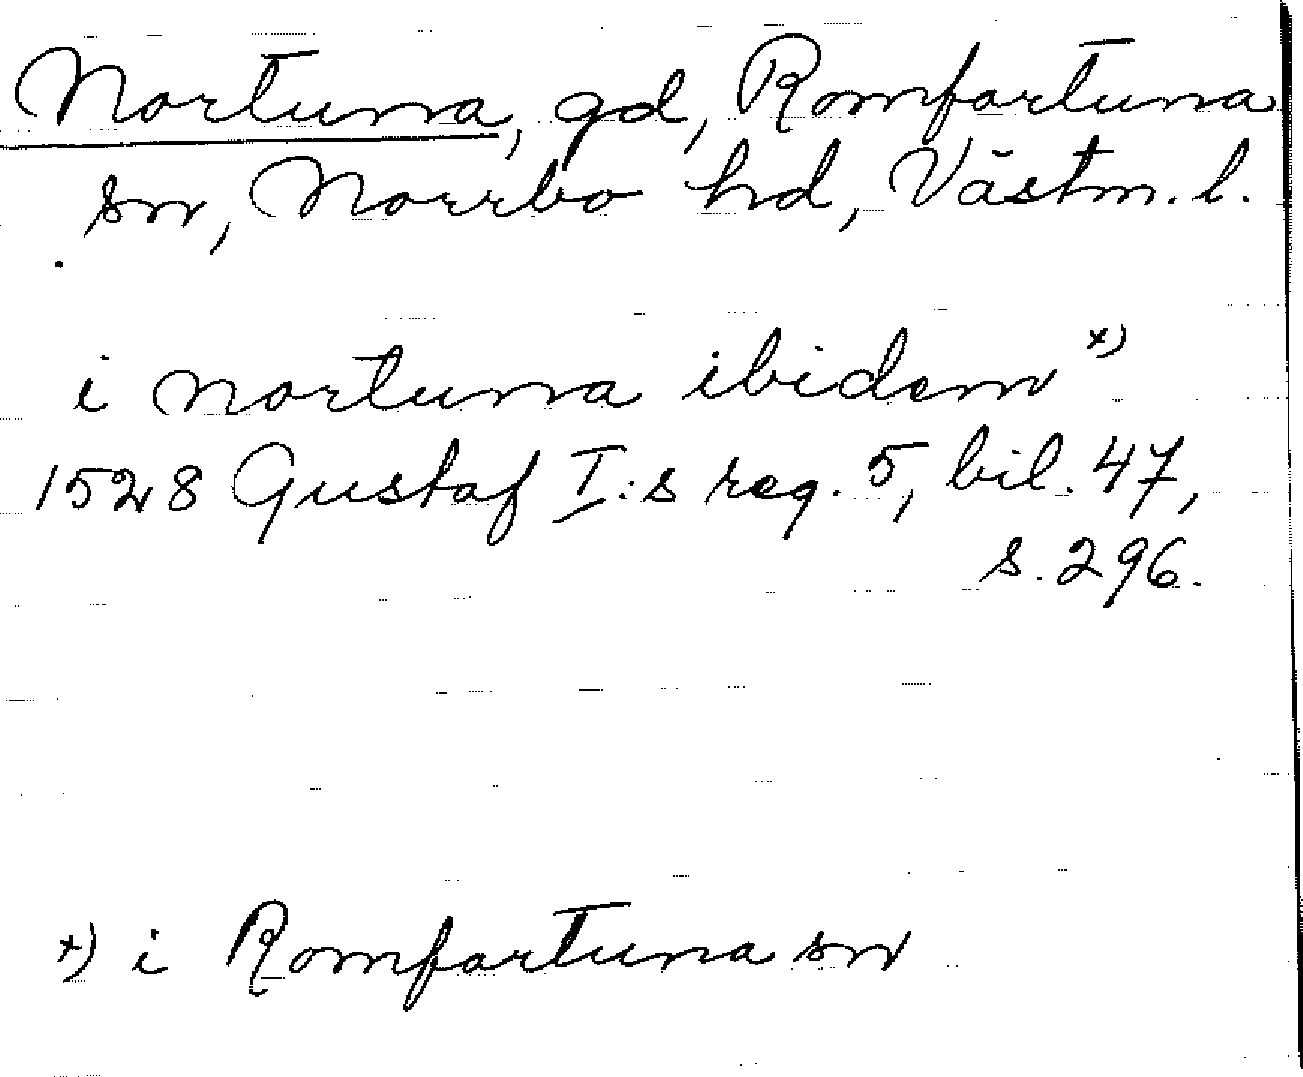 Nortuna, gd, Romfartuna
sn, Norrbo hd, Västm. l.
i nortuna ibidem x)
1528 Gustaf I:s reg. 5, bil. 47,
s. 296.
x) i Romfartuna sn